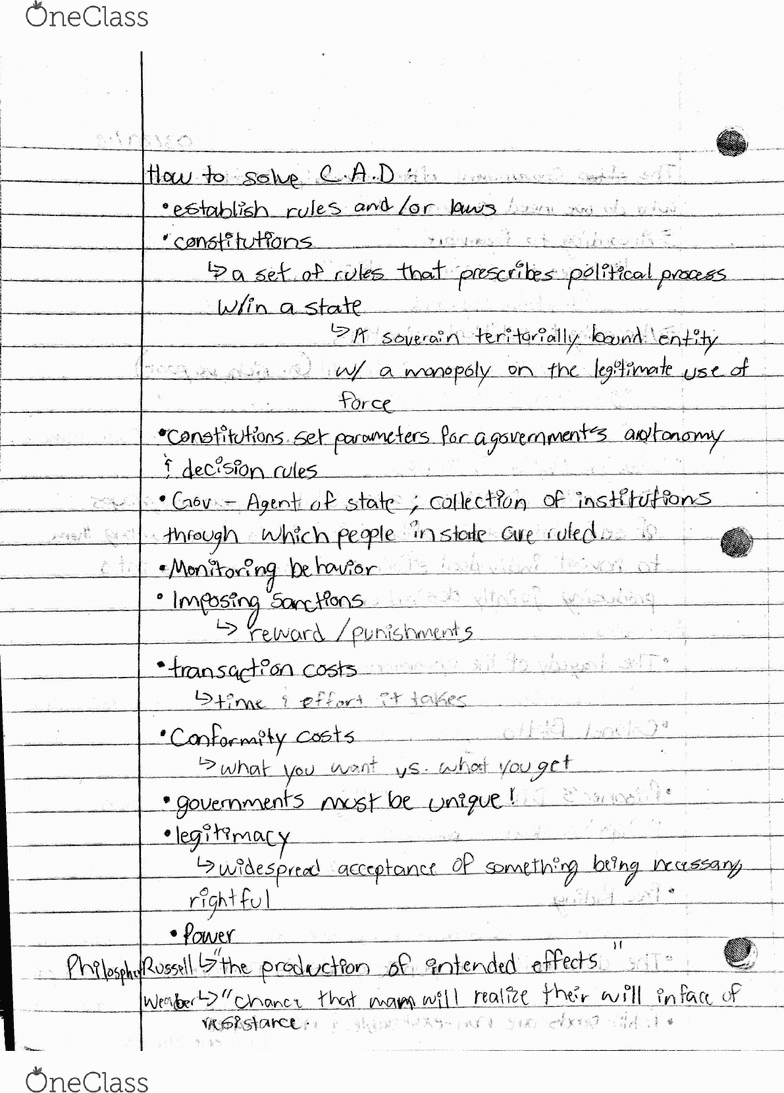 OneClass
How to solve C.A.D :
• establish rules and/or laws
• constitutions
↳ a set of rules that prescribes political process
w/in a state
↳ A soverain teritorially bound entity
w/ a monopoly on the legitimate use of
force
• Constitutions set parameters for a government's autonomy
& decision rules
• Gov – Agent of state ; collection of institutions
through which people in state are ruled.
• Monitoring behavior
• Imposing Sanctions
↳ reward /punishments
• transaction costs
↳ time & effort it takes
• Conformity costs
↳ what you want vs. what you get
• governments must be unique!
• legitimacy
↳ widespread acceptance of something being necessary
rightful
• Power
Russell ↳ "the production of intended effects "
↳ "chance that mam will realize their will inface of
resistance.
OneClass